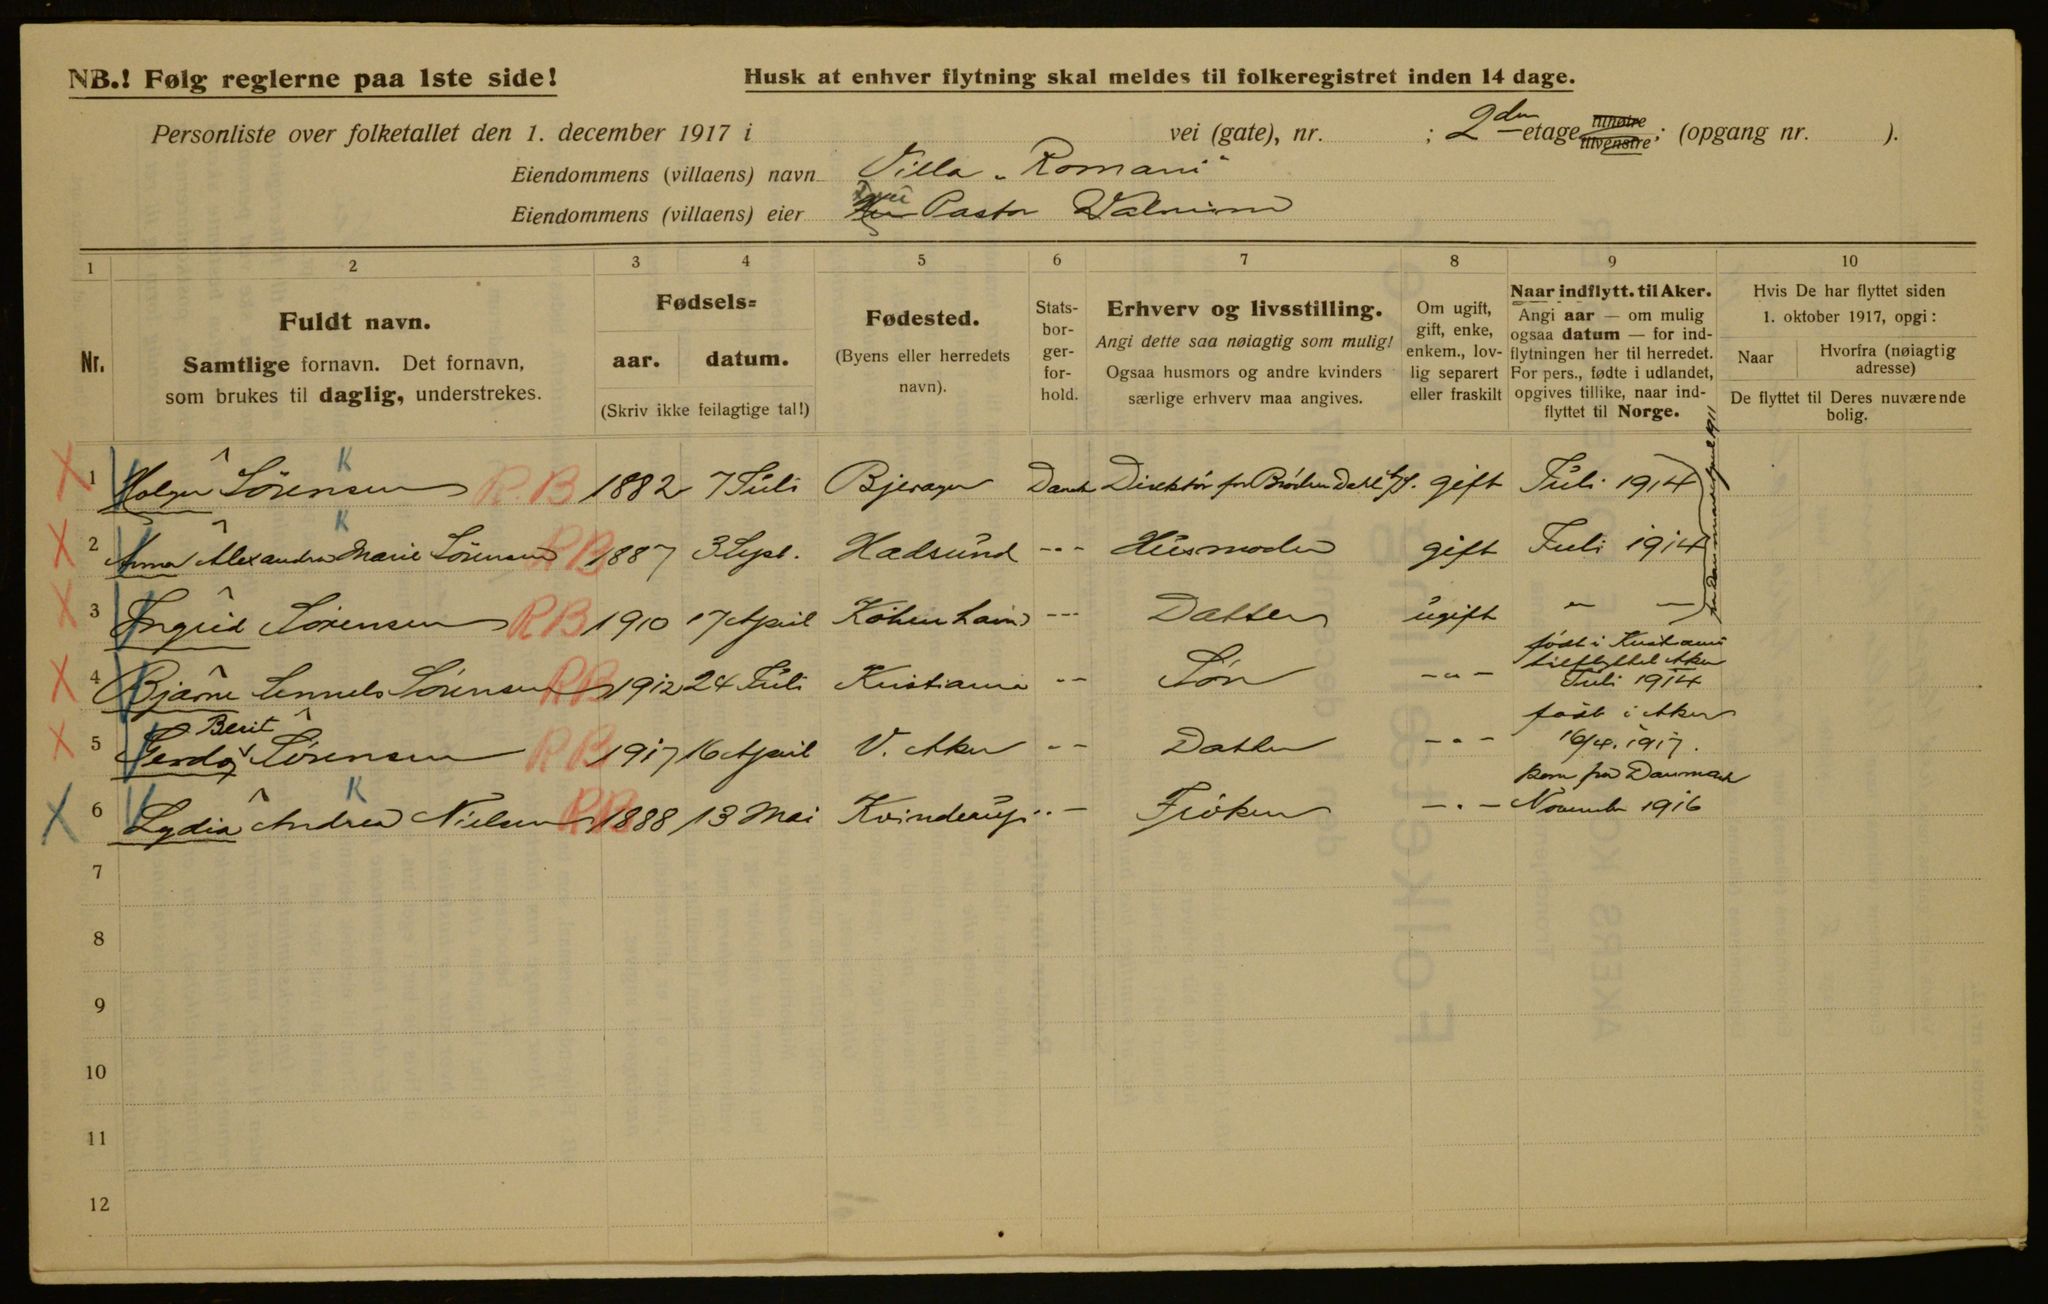 NB.! Følg reglerne paa 1ste side!
Husk at enhver flytning skal meldes til folkeregistret inden 14 dage.
Personliste over folketallet den 1. december 1917 i vei (gate), nr. ; 2den etage tilhøire tilvenstre ; (opgang nr. ).
Eiendommens (villaens) navn Villa „Romani"
Eiendommens (villaens) eier Pastor
1 2 3 4 5 6 7 8 9 10
Nr.
Fuldt navn.
Samtlige fornavn. Det fornavn,
som brukes til daglig, understrekes.
Fødsels=
aar. datum.
(Skriv ikke feilagtige tal!)
Fødested.
(Byens eller herredets
navn).
Stats-
bor-
ger-
for-
hold.
Erhverv og livsstilling.
Angi dette saa nøiagtig som mulig!
Ogsaa husmors og andre kvinders
særlige erhverv maa angives.
Om ugift,
gift, enke,
enkem., lov-
lig separert
eller fraskilt
Naar indflytt. til Aker.
Angi aar — om mulig
ogsaa datum — for ind-
flytningen her til herredet.
For pers., fødte i udlandet,
opgives tillike, naar ind-
flyttet til Norge.
Hvis De har flyttet siden
1. oktober 1917, opgi:
Naar
Hvorfra (nøiagtig
adresse)
De flyttet til Deres nuværende
bolig.
K
X 1 Holger Sörensen RB 1882 7 Juli Bjerager Dansk Direktör for Brödrene Dahl A/S. gift Juli 1914
K
X 2 Anna Alexandra Marie Sörensen RB 1887 3 Sept. Hadsund --- Husmoder gift Juli 1914
fra Danmark April 1911
X 3 Ingrid Sörensen RB 1910 17 April Köbenhavn --- Datter ugift " —
født i Kristiania
tilflyttet Aker
X 4 Bjarne Sennels Sörensen RB 1912 24 Juli Kristiania -- Sön -"- Juli 1914
Berit
født i Aker
X 5 Gerda Sörensen RB 1917 16 April V. Aker -- Datter -"- 16/4. 1917.
K
kom fra Danmark
X 6 Lydia Andrea Nielsen RB 1888 13 Mai Kvinderup -- Fröken -"- November 1916
7
8
9
10
11
12